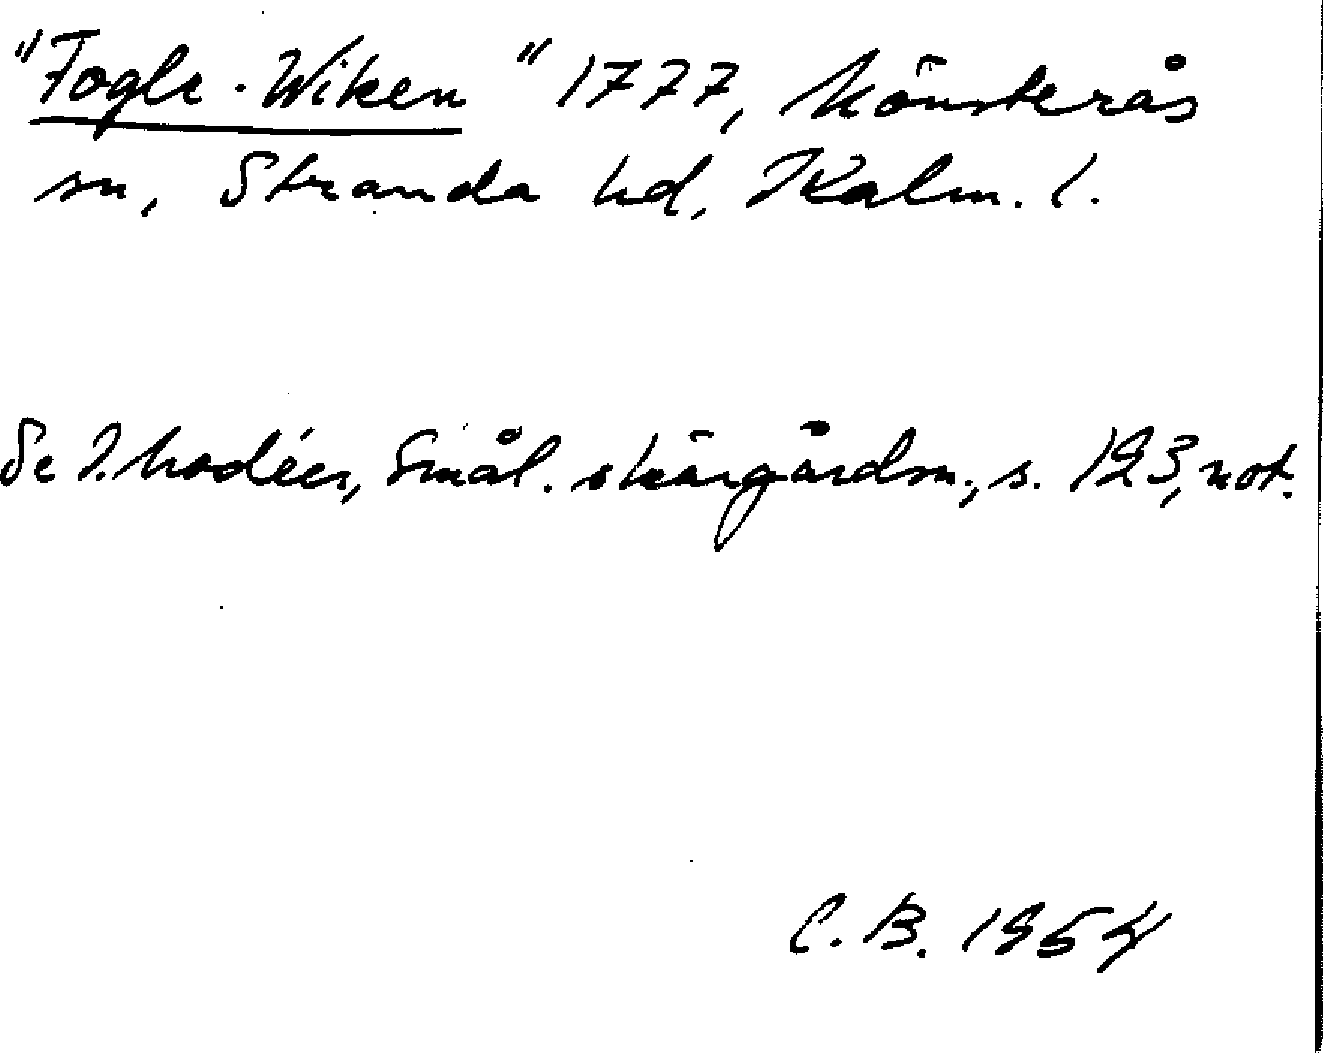 "Fogle-Wiken" 1777, Mönsterås
sn, Stranda hd, Kalm. l.
Se J. Modéer, Smål. skärgårdsn., s. 193, not.
C. B. 1954